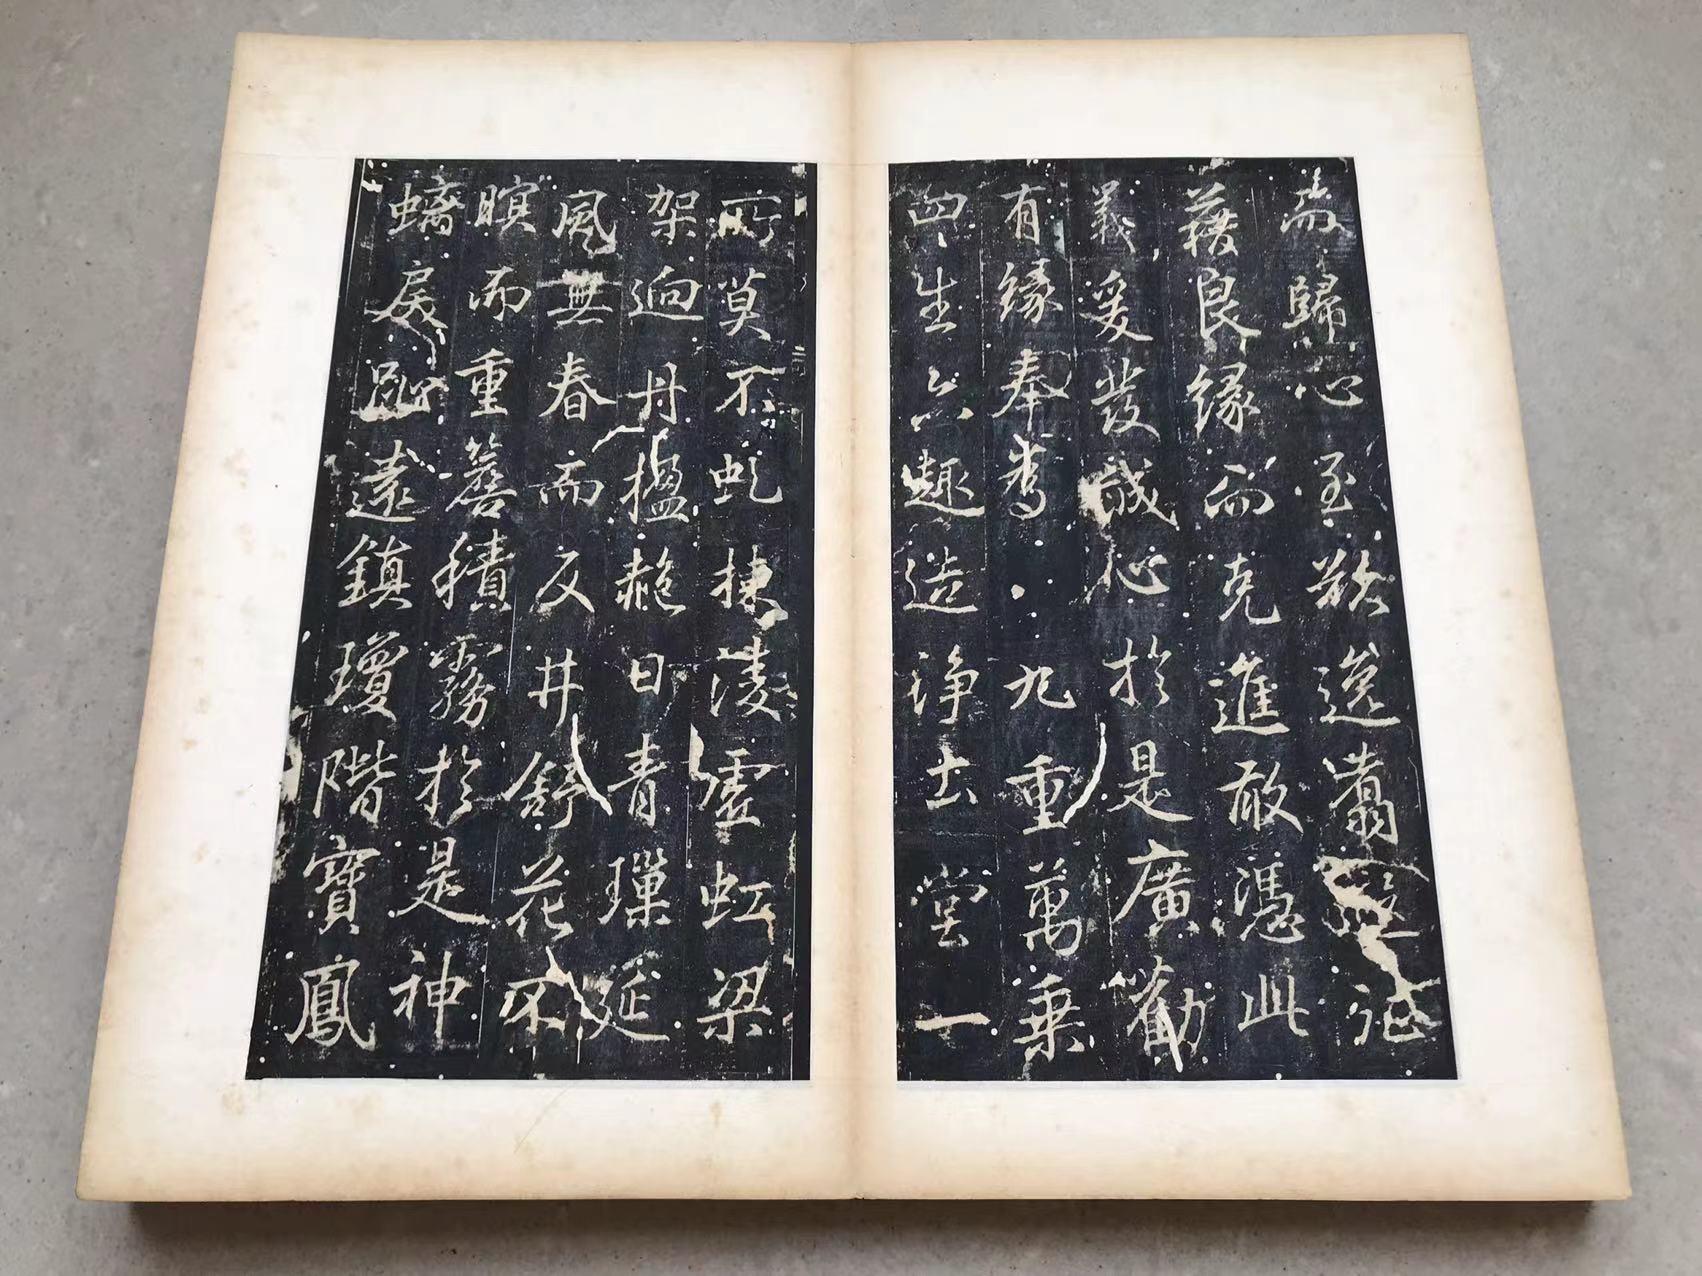 歸心至欲逸翥征
藉良緣而克進敢憑此
義爰發誠心於是廣勸
有緣奉為九重萬乘
四生六趣造淨土堂一
所莫不虬棟淩虛虹梁
架迥丹楹赩日青璅延
風無春而反井舒花不
暝而重簷積霧於是神
螭戾趾遠鎮瓊階寶鳳